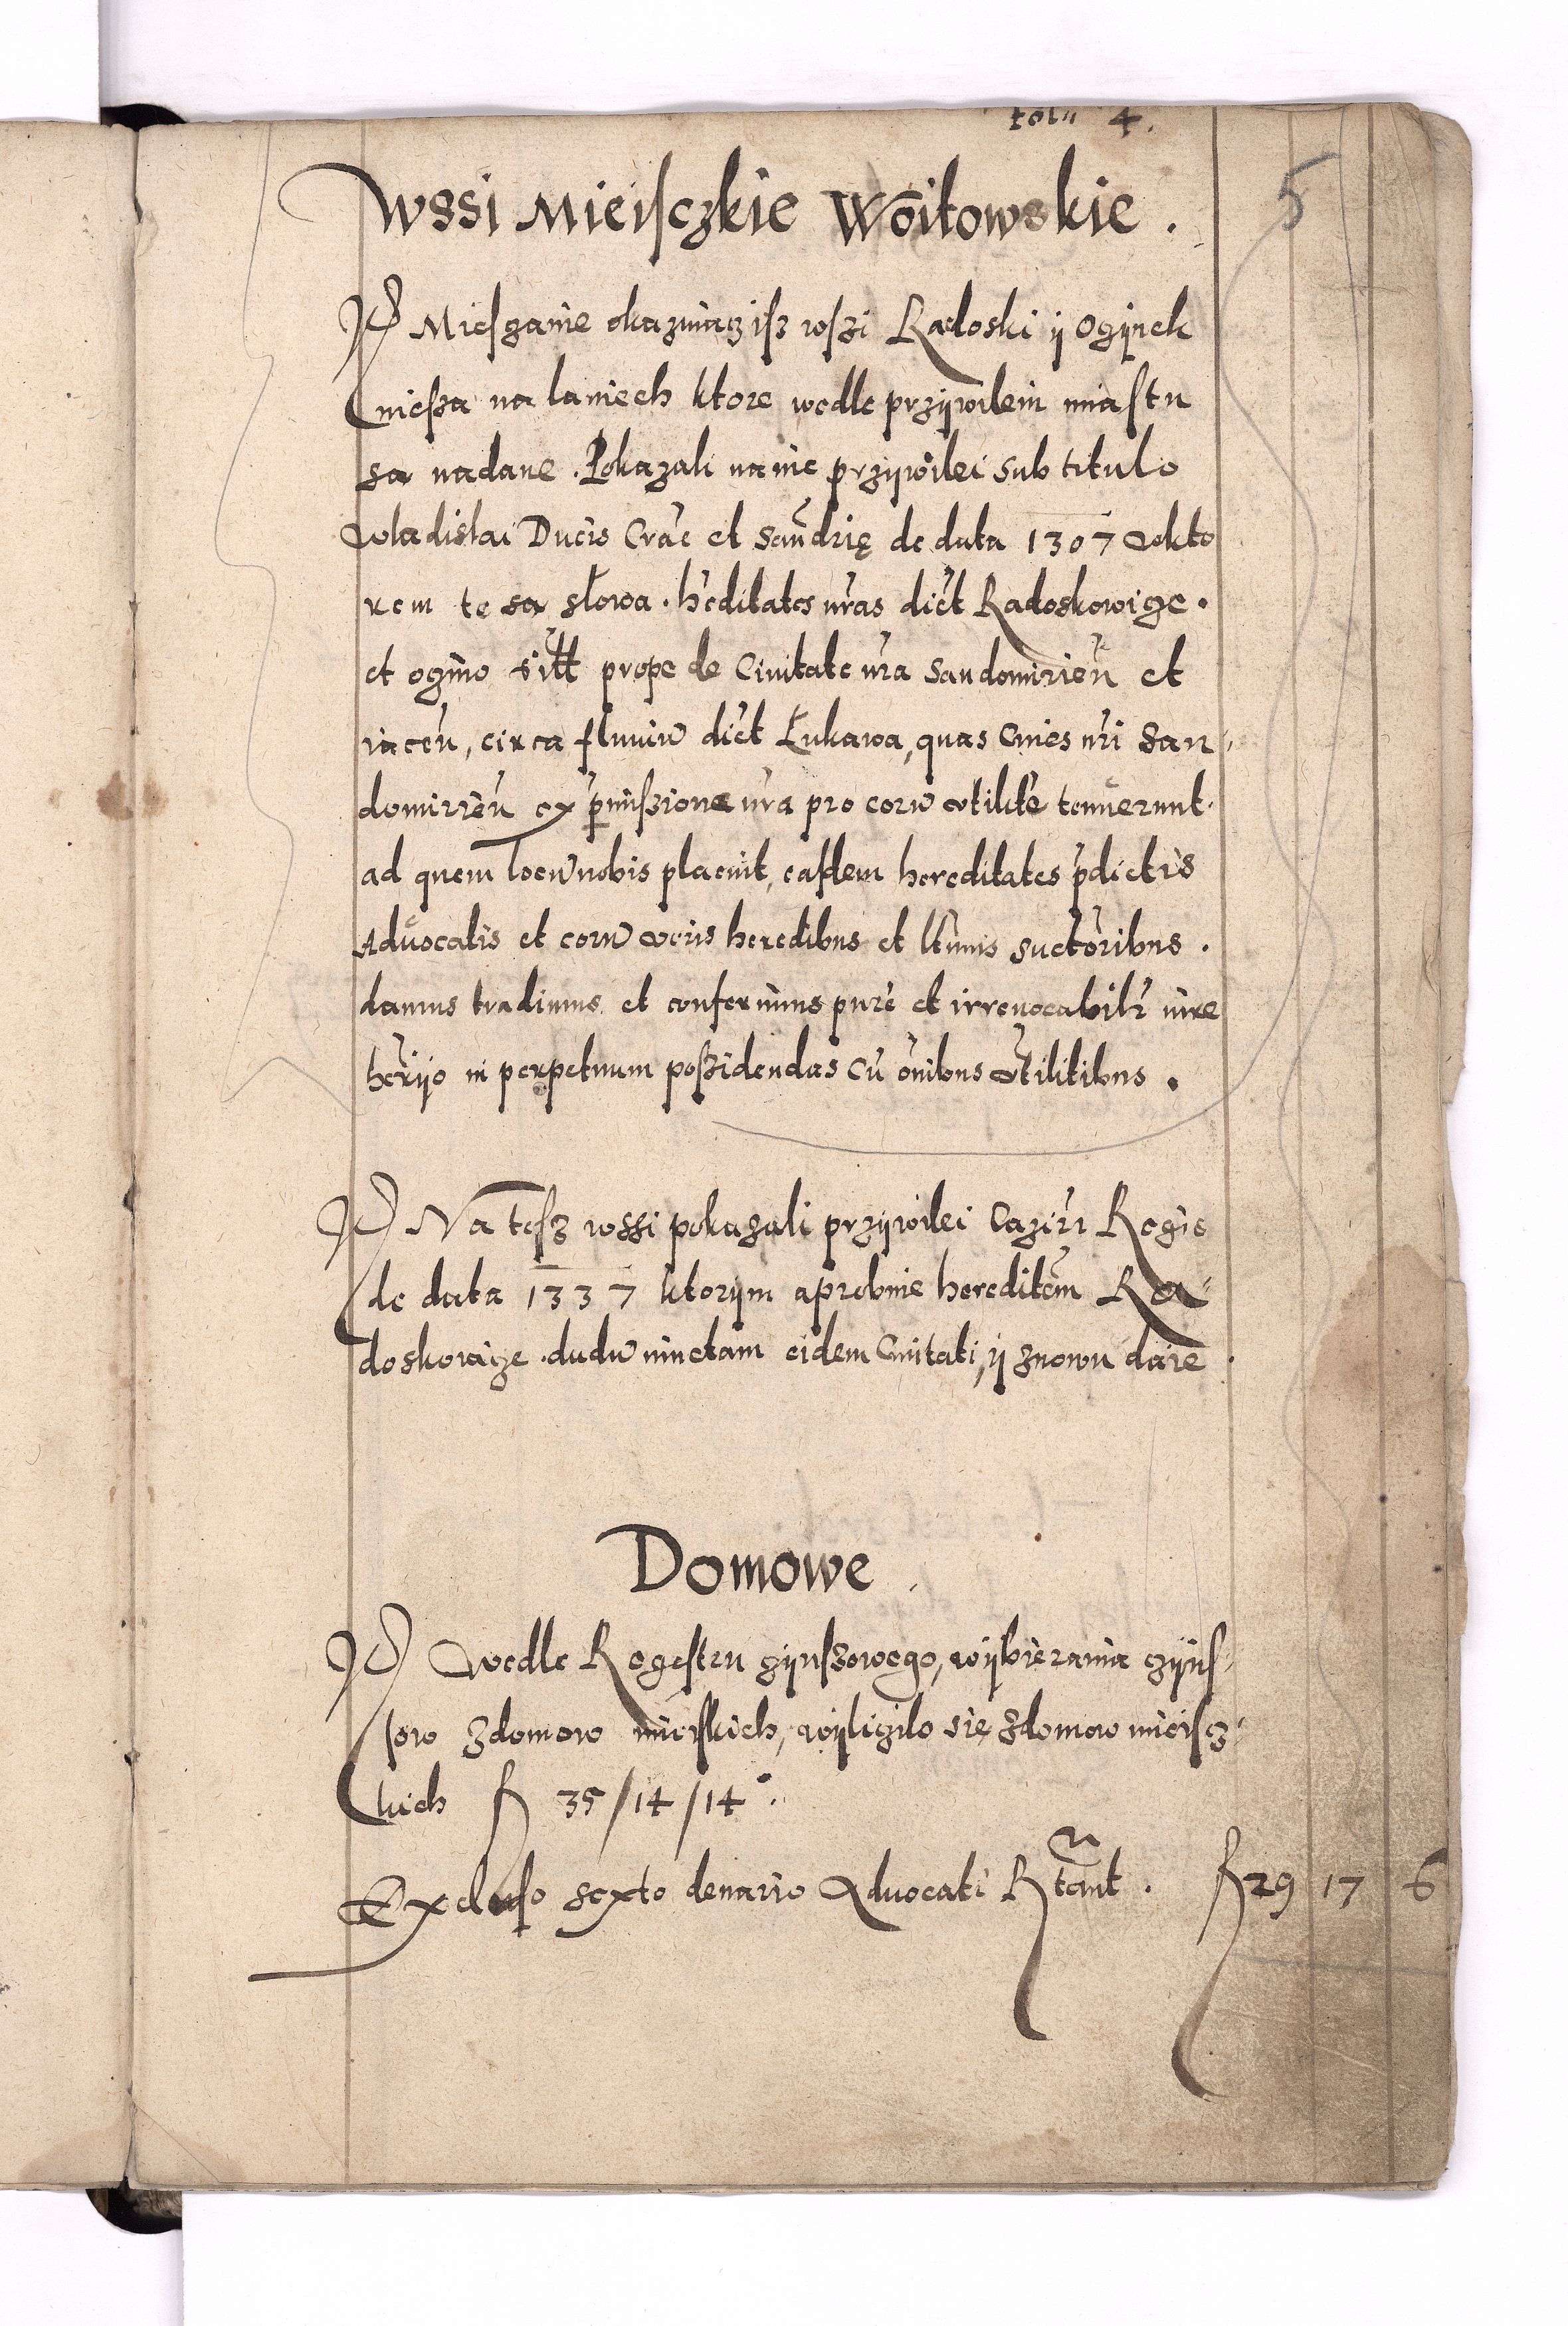 foliu 4.
5
Wssi Mieisczkie Woitowskie.
It Miesczanie okazuiącz isz wszi Radoski ij Ogijnek
niesza na laniech ktore wedle przijwileiu miastu
sa nadane. Pokazali na nie przijwilei sub titulo
Wladislai Ducis Crac et Sandrię de data 1307 wkto
rem te sa słowa. hēditates nras dict Radoskowicze.
et ogino sitt prope de Ciuitate nra Sandomirien et
iacen, circa fluuiū dict Łukawa, quas Ciues nri San-
domirien ex pmissione nra pro eorū vtilite tenuerunt.
ad quem locū nobis placuit, easdem hereditates pdictis
Aduocatis et eorū veris heredibus et ltimis suctoribus.
damus tradimus et conferimus pure et irreuocabilr iure
hērijo in perpetuum possidendas cū ōnibus vtilitibus.
It Na tesz wssi pokazali przijwilei Cazirī Regis
de data 1337 ktorijm aprobuie hereditem Ra-
doskowicze. dudū iunctam eidem Ciuitati, ij znowu daie.
Domowe
It Wedle Regestru czijnszowego, wijbierania czijns-
sow zdomow mieiskich, wijliczilo się zdomow mieiscz-
kich fl 35/14/14.
Excluso sexto denario Aduocati Rtant. fl 29 17 6